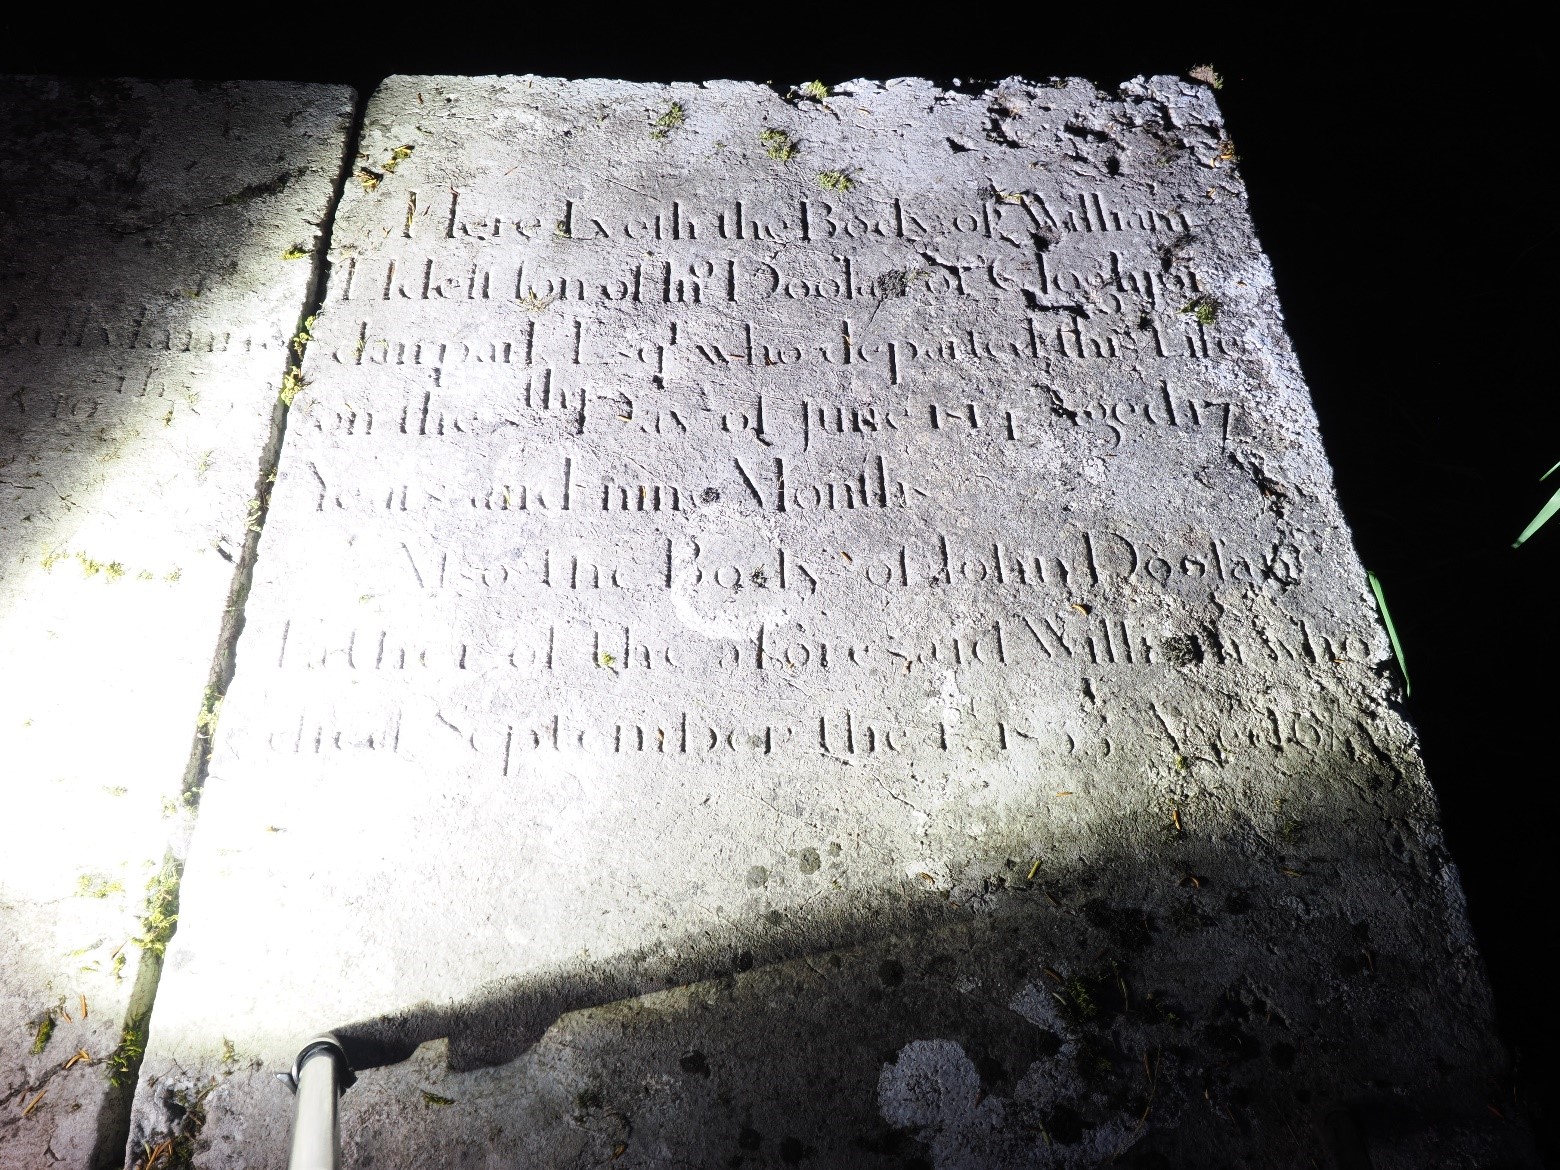 Here Lyeth the Body of William
Eldest son of Jno Doolan of
Esqr who departed this Life
on the Day of June Aged 17
Years and nine Months
Also the Body of John Doolan
Father of the aforesaid William who
died September the Aged